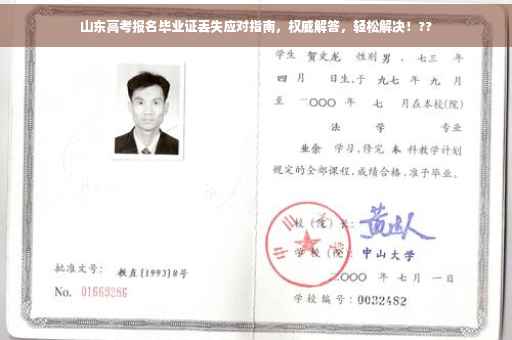 山东高考报名毕业证丢失应对指南，权威解答，轻松解决！??
学生 贺文龙 性别 男 、七三 年
四 月 日生,于 九七 年 九 月
至 二〇〇〇 年 七 月在本校(院)
法 学 专业
业余 学习,修完 本 科教学计划
规定的全部课程,成绩合格,准予毕业。
校 (院) 长:
学 校 (院): 中山大学
二〇〇〇 年 七 月 一 日
学校编号: 0032482
批准文号: 教直[1993]8号
No. 01669286